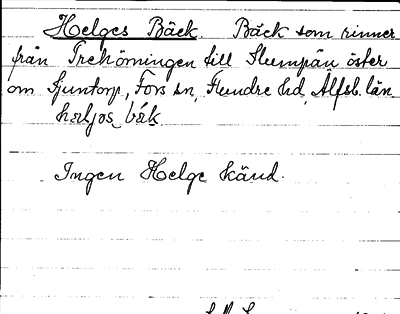 Helges Bäck. Bäck som rinner
från Trehörningen till Slumpån öster
om Sjuntorp, Fors sn, Flundre hd, Älfsb. län.
hæljas bák
Ingen Helge känd.